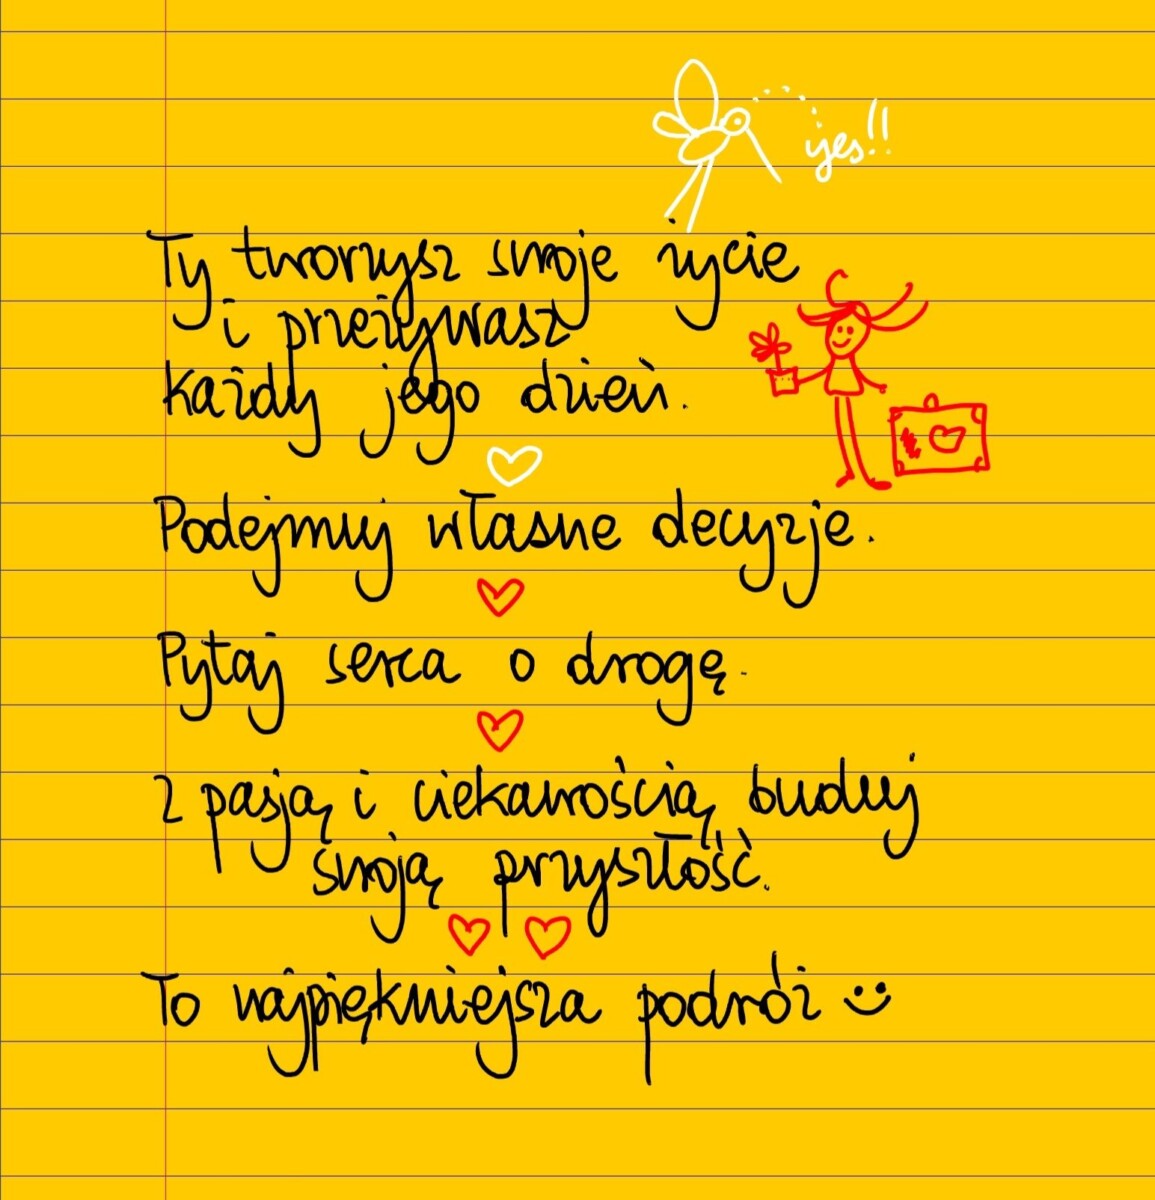 yes!!
Ty tworzysz swoje życie
i przeżywasz
każdy jego dzień.
Podejmuj własne decyzje.
Pytaj serca o drogę.
Z pasją i ciekawością buduj
swoją przyszłość.
To najpiękniejsza podróż